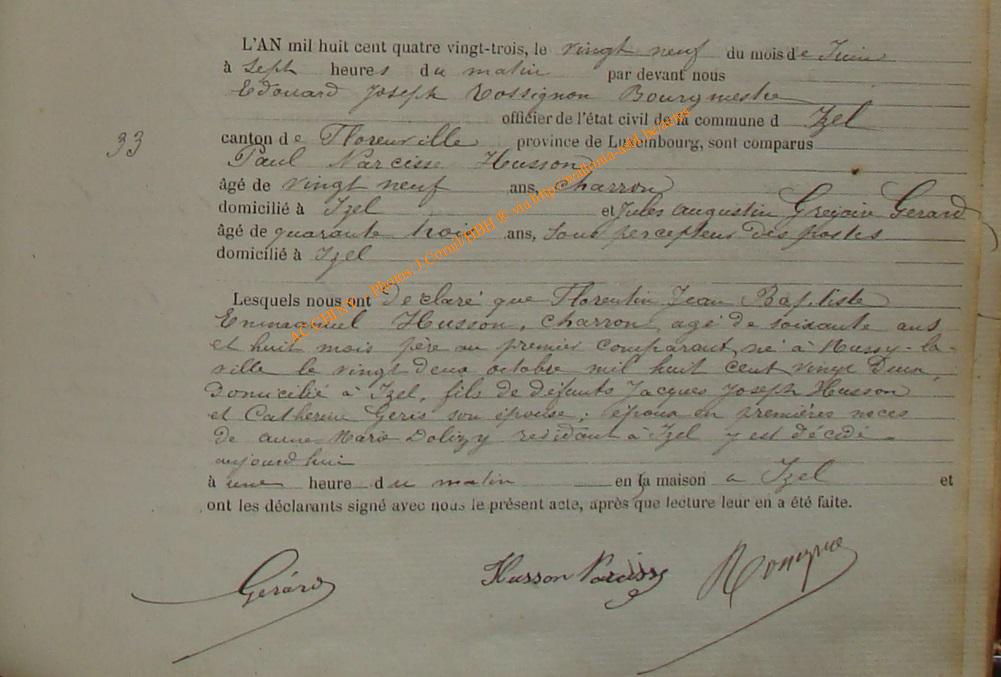 L'AN mil huit cent quatre vingt-trois, le vingt neuf du mois de Juin
à Sept heures du matin par devant nous
Edouard Joseph Rossignon Bourgmestre
officier de l'état civil de la commune d Izel
33
canton de Florenville province de Luxembourg, sont comparus
Paul Narcisse Husson
âgé de vingt neuf ans, charron
domicilié à Izel et Jules Augustin Grégoire Gerard
âgé de quarante trois ans, Sous percepteur des postes
domicilié à Izel
Lesquels nous ont declaré que Florentin Jean Baptiste
Emmanuel Husson, charron, agé de soixante ans
et huit mois père au premier comparant, né à Mussy-la-
ville le vingt deux octobre mil huit cent vingt Deux,
Domicilié à Izel, fils de défunts Jacques Joseph Husson
et Catherine Geris son épouse; époux en premières noces
de anne Marie Dolizy residant à Izel y est décédé
aujourd'hui
à une heure du matin en la maison a Izel et
ont les déclarants signé avec nous le présent acte, après que lecture leur en a été faite.
Gérard Husson Narcisse